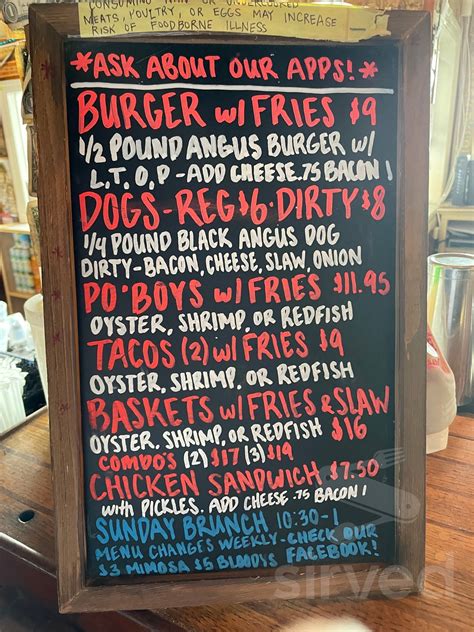 CONSUMING RAW OR UNDERCOOKED
MEATS, POULTRY, OR EGGS MAY INCREASE
RISK OF FOODBORNE ILLNESS
*ASK ABOUT OUR APPS!*
BURGER w/ FRIES $9
1/2 POUND ANGUS BURGER w/
L,T,O,P - ADD CHEESE .75 BACON 1
DOGS - REG $6 · DIRTY $8
1/4 POUND BLACK ANGUS DOG
DIRTY - BACON, CHEESE, SLAW, ONION
PO'BOYS w/ FRIES $11.95
OYSTER, SHRIMP, OR REDFISH
TACOS (2) w/ FRIES $9
OYSTER, SHRIMP, OR REDFISH
BASKETS w/ FRIES & SLAW
OYSTER, SHRIMP, OR REDFISH $16
COMBO'S (2) $17 (3) $19
CHICKEN SANDWICH $7.50
with PICKLES. ADD CHEESE .75 BACON 1
SUNDAY BRUNCH 10:30-1
MENU CHANGES WEEKLY - CHECK OUR
$3 MIMOSA $5 BLOODYS FACEBOOK!
sirved